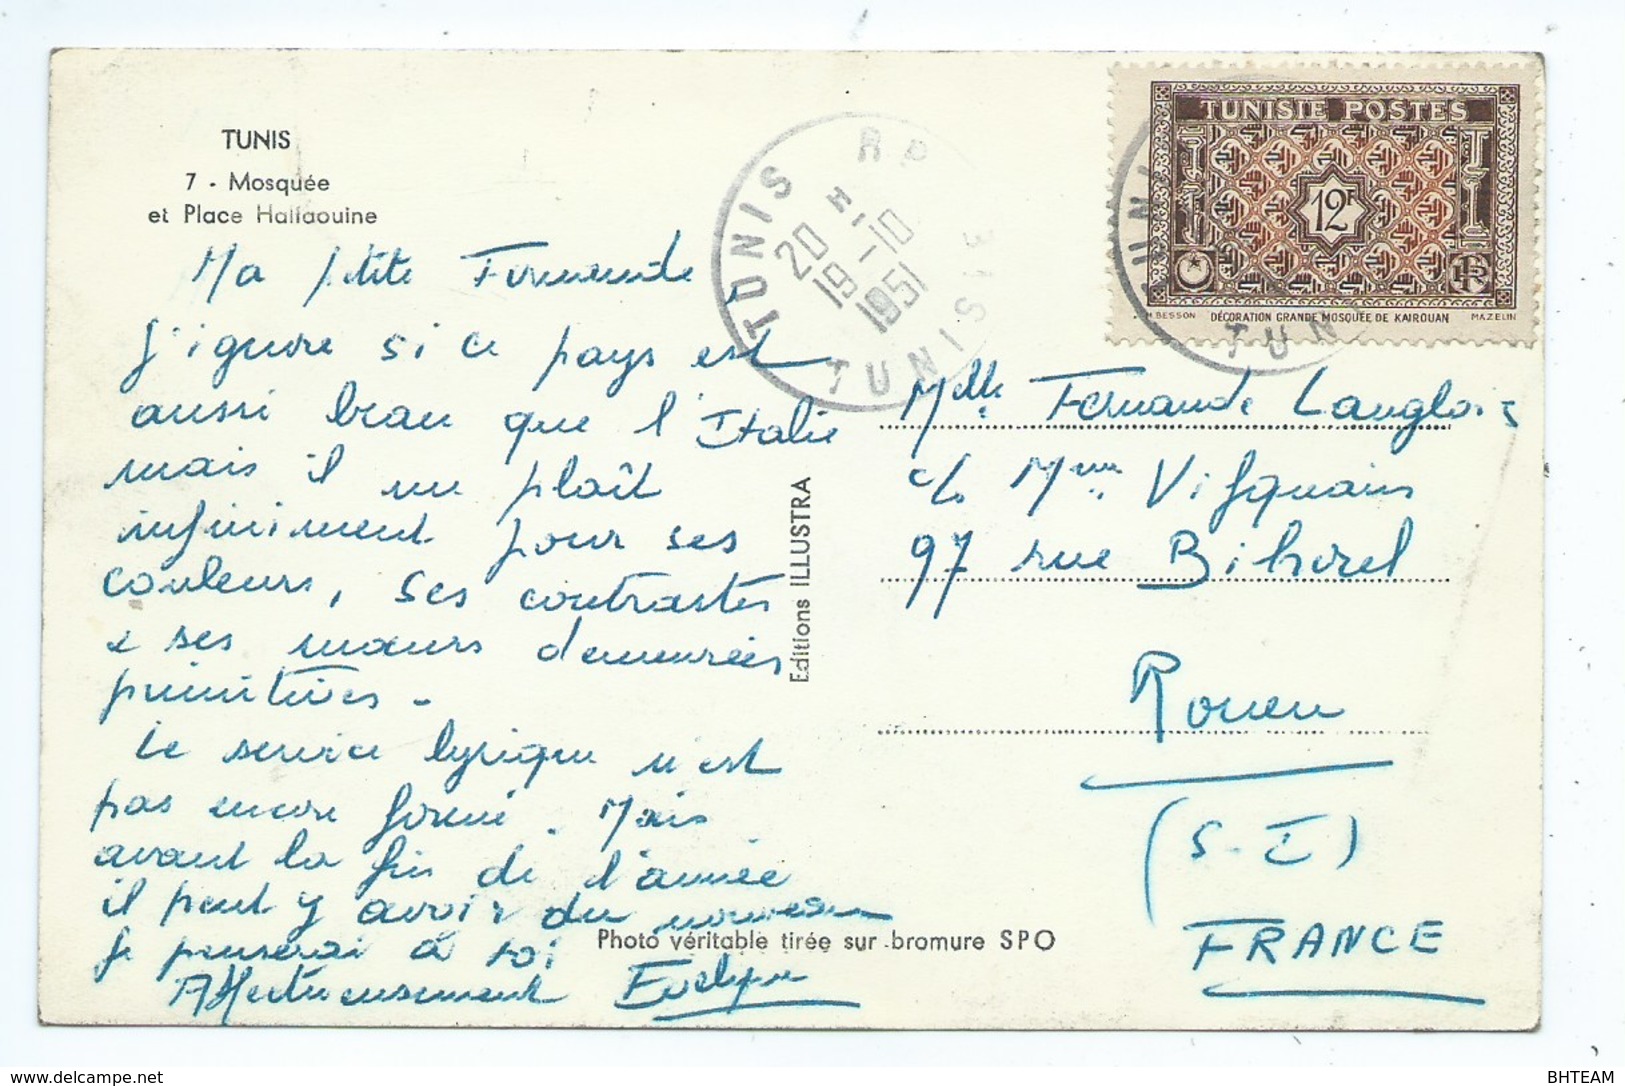 TUNIS
7 - Mosquée
et Place Halfaouine
Ma petite Fernande,
J'ignore si ce pays est
aussi beau que l'Italie
mais il me plaît
infiniment pour ses
couleurs, ses contrastes
& ses mœurs demeurées
primitives -
Le service lyrique n'est
pas encore formé. Mais
avant la fin de l'année
il peut y avoir du nouveau
Je penserai à toi
Affectueusement Evelyne
Editions ILLUSTRA
Photo véritable tirée sur bromure SPO
TUNIS RP
20 H
19-10
1951
TUNISIE
TUNISIE POSTES
12F
RF
H. BESSON DÉCORATION GRANDE MOSQUÉE DE KAIROUAN MAZELIN
TUNI
TUN
Melle Fernande Langlois
c/o Mme Vifquain
97 rue Bihorel
Rouen
(S-I)
FRANCE
BHTEAM